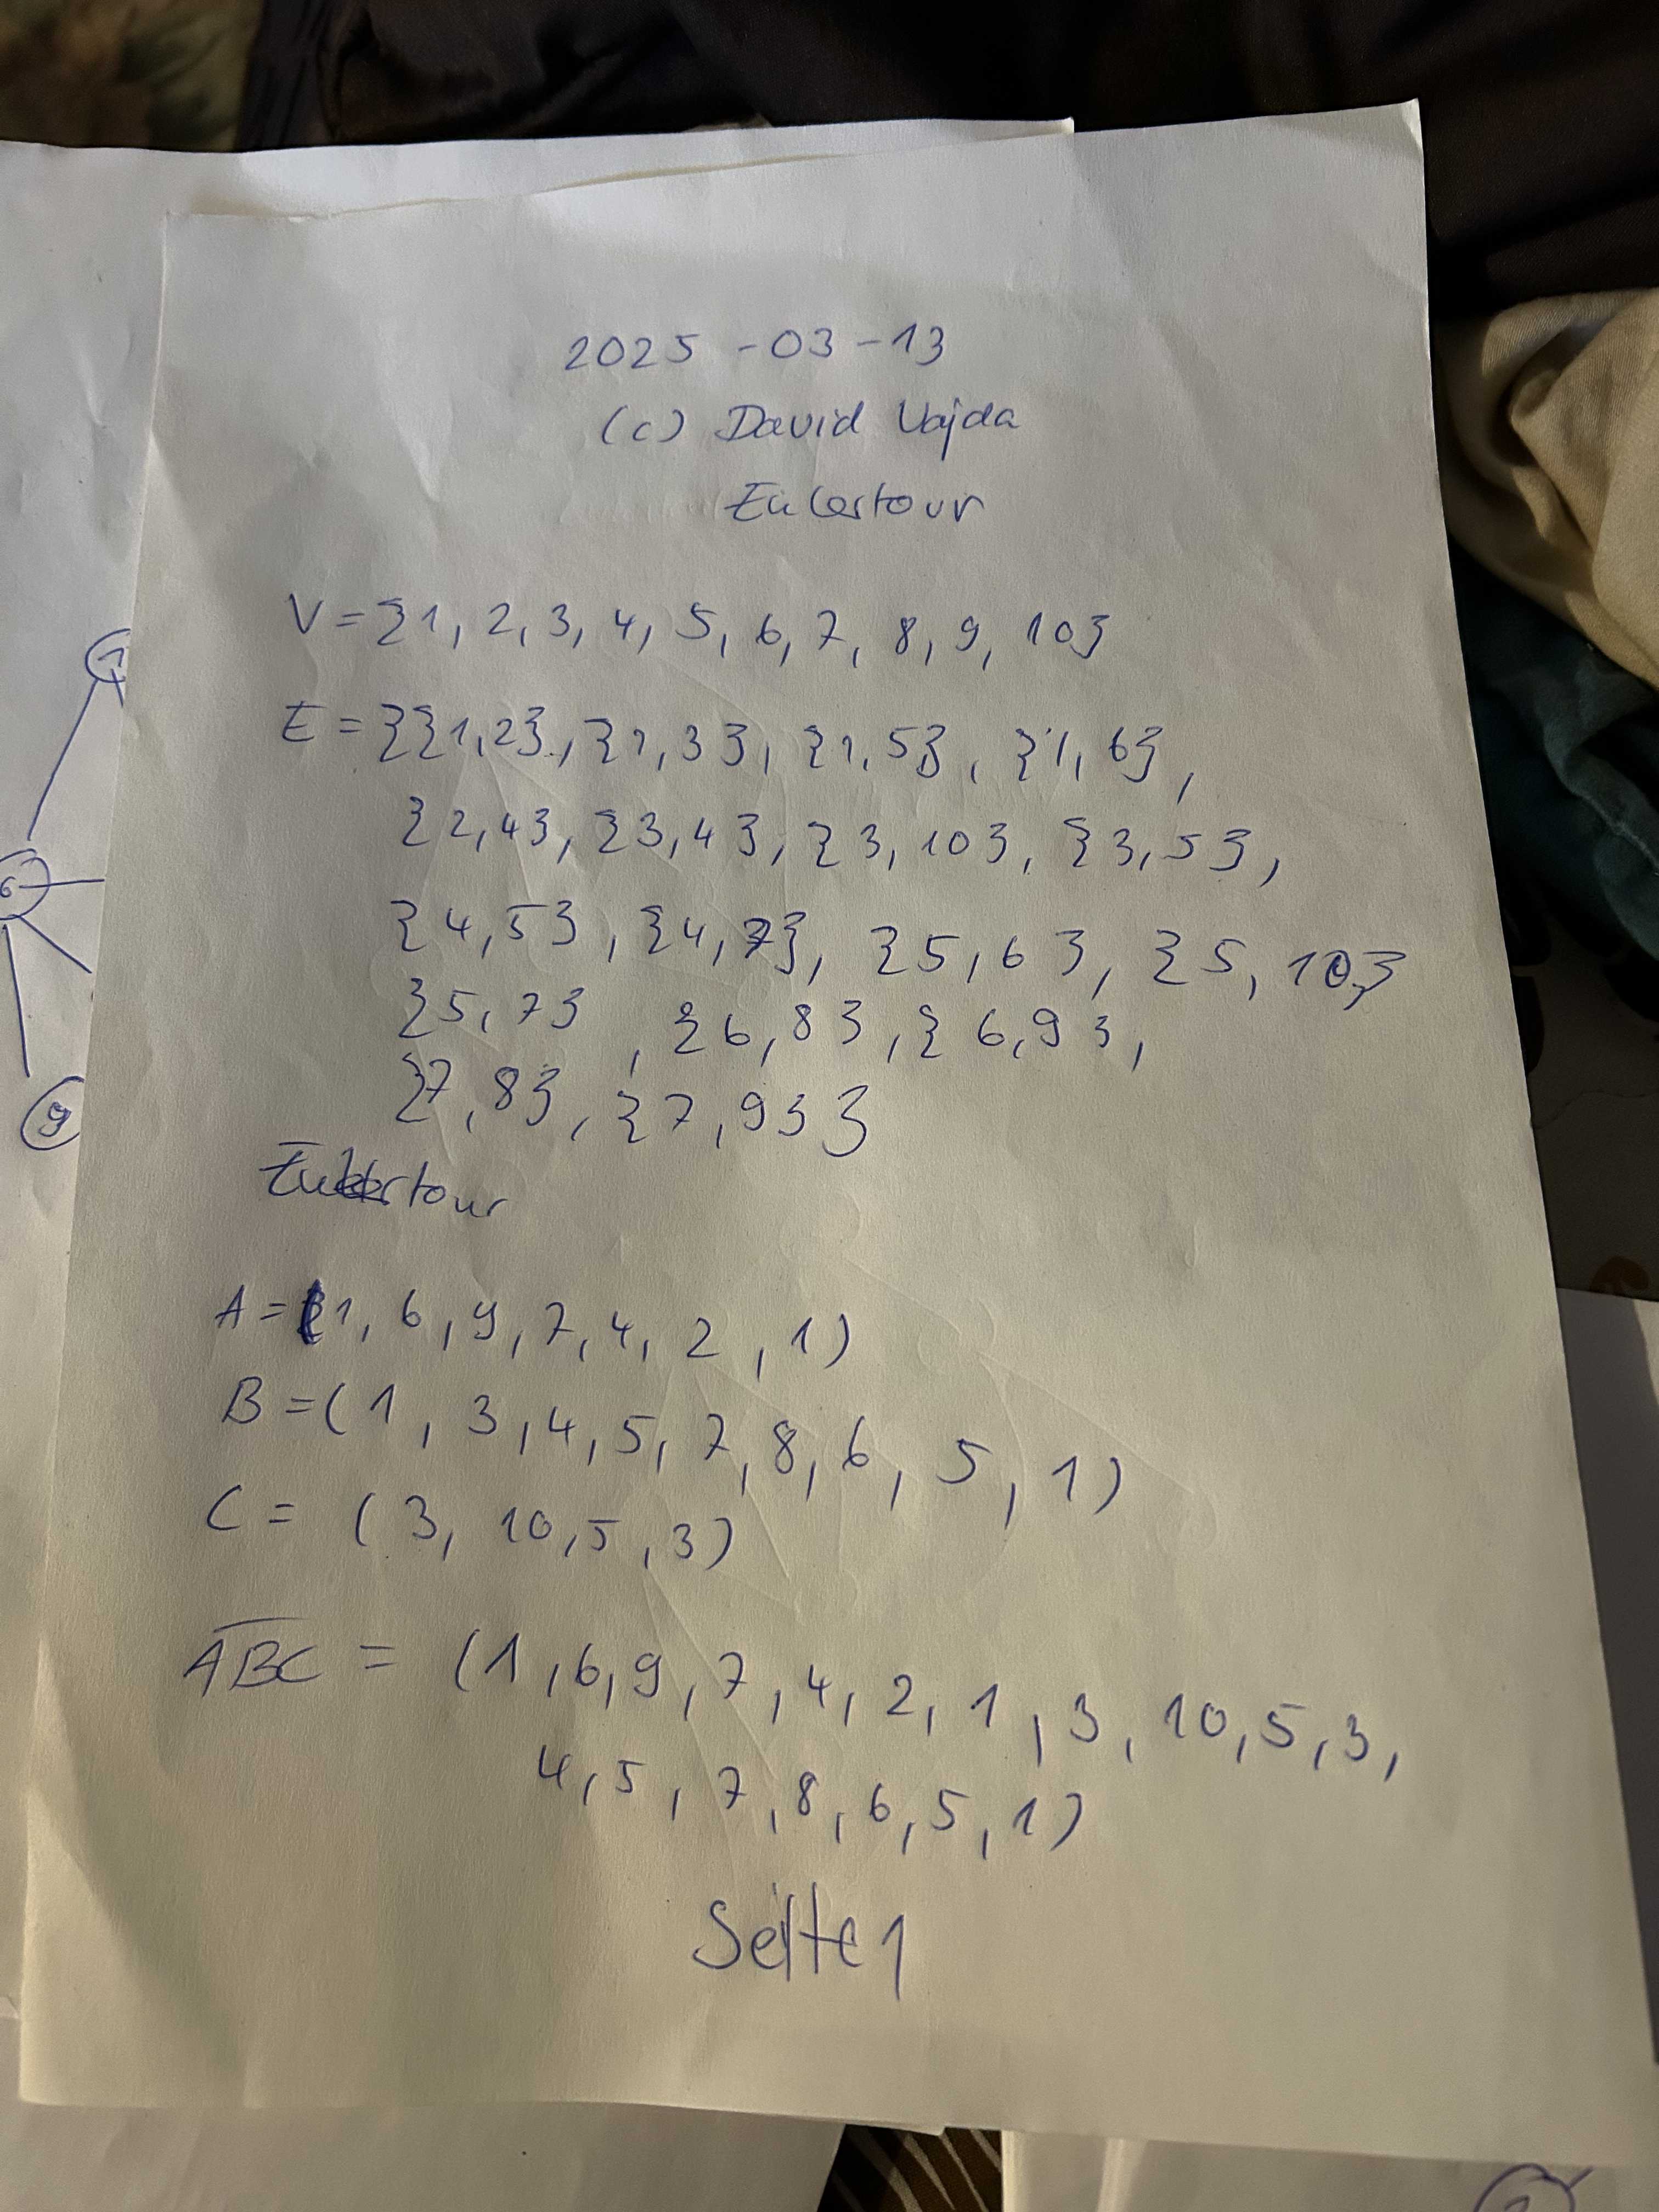 2025-03-13
(c) David Vajda
Eulertour
V={1, 2, 3, 4, 5, 6, 7, 8, 9, 10}
E={{1,2}, {1,3}, {1,5}, {1,6},
{2,4}, {3,4}, {3,10}, {3,5},
{4,5}, {4,7}, {5,6}, {5,10}
{5,7}, {6,8}, {6,9},
{7,8}, {7,9}}
Eulertour
A=(1, 6, 9, 7, 4, 2, 1)
B=(1, 3, 4, 5, 7, 8, 6, 5, 1)
C=(3, 10, 5, 3)
A̅B̅C̅ = (1, 6, 9, 7, 4, 2, 1, 3, 10, 5, 3,
4, 5, 7, 8, 6, 5, 1)
Seite 1
1
6
9